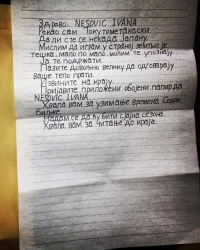 Здраво. NESOVIC IVANA
Рекао сам Токутометакаски.
Да ли сте се некада Јапану.
Мислим да играм у страној земљи је
тешка, мало по мало, молим те упознају.
Да те подржати.
Пазите довољно велику да одговарају
ваше тело прати.
Извините на крају.
Пријавите приложени обојени папир да
NESOVIC IVANA.
Хвала вам за узимање времена Сорви
биљке.
Надам се да ћу бити сјајна сезона.
Хвала вам за читање до краја.